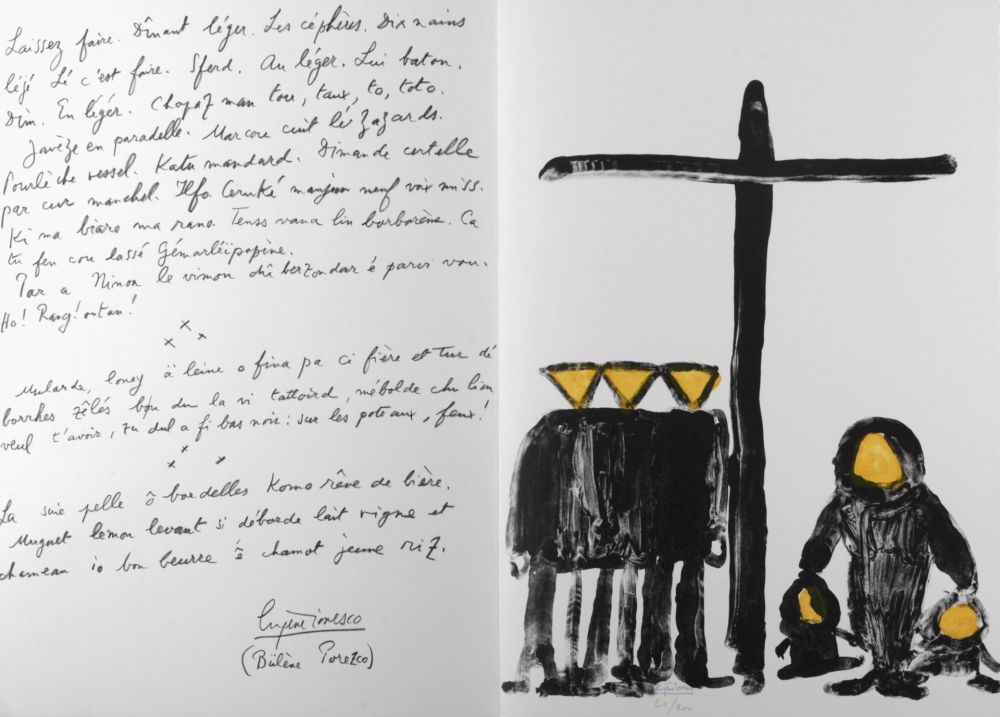 Laissez faire. Dînant léger. Les céphères. Dix nains
léjé Lé c'est faire. Sferd. Au léger. Lui baton.
Dim. En léger. Chopaz man tou, taux, to, toto.
Javèze en paradelle. Marcou cuit lé zazards.
Pourlèche vessel. Katu mandard. Dimande certelle
par cur manchel. Ilfo Ceruké manjion neuf voix miss.
Ki ma biaro ma rano. Tenss vana lin barbarène. Ca
tu fen cou lassé Gémarléïpopine.
Par a Ninon le vimon dû berzondar é parivi vou.
Ho! Rang! outan!
x x x
Mularde, loney ä leine o fina pa ci fière et Tue dé
borches zélés bou du la vi tattoird, mébolde chu lien
veul t'avoir, zu dul a fi bas noir: sur les poteaux, feux!
x x x
La suie pelle ô bordelles Komo rêve de bière.
Muguet lemon levant si déborde lait vigne et
chameau io bon beurre ê chamot jeune riz.
Eugène Ionesco
(Bülène Porezco)
20/200